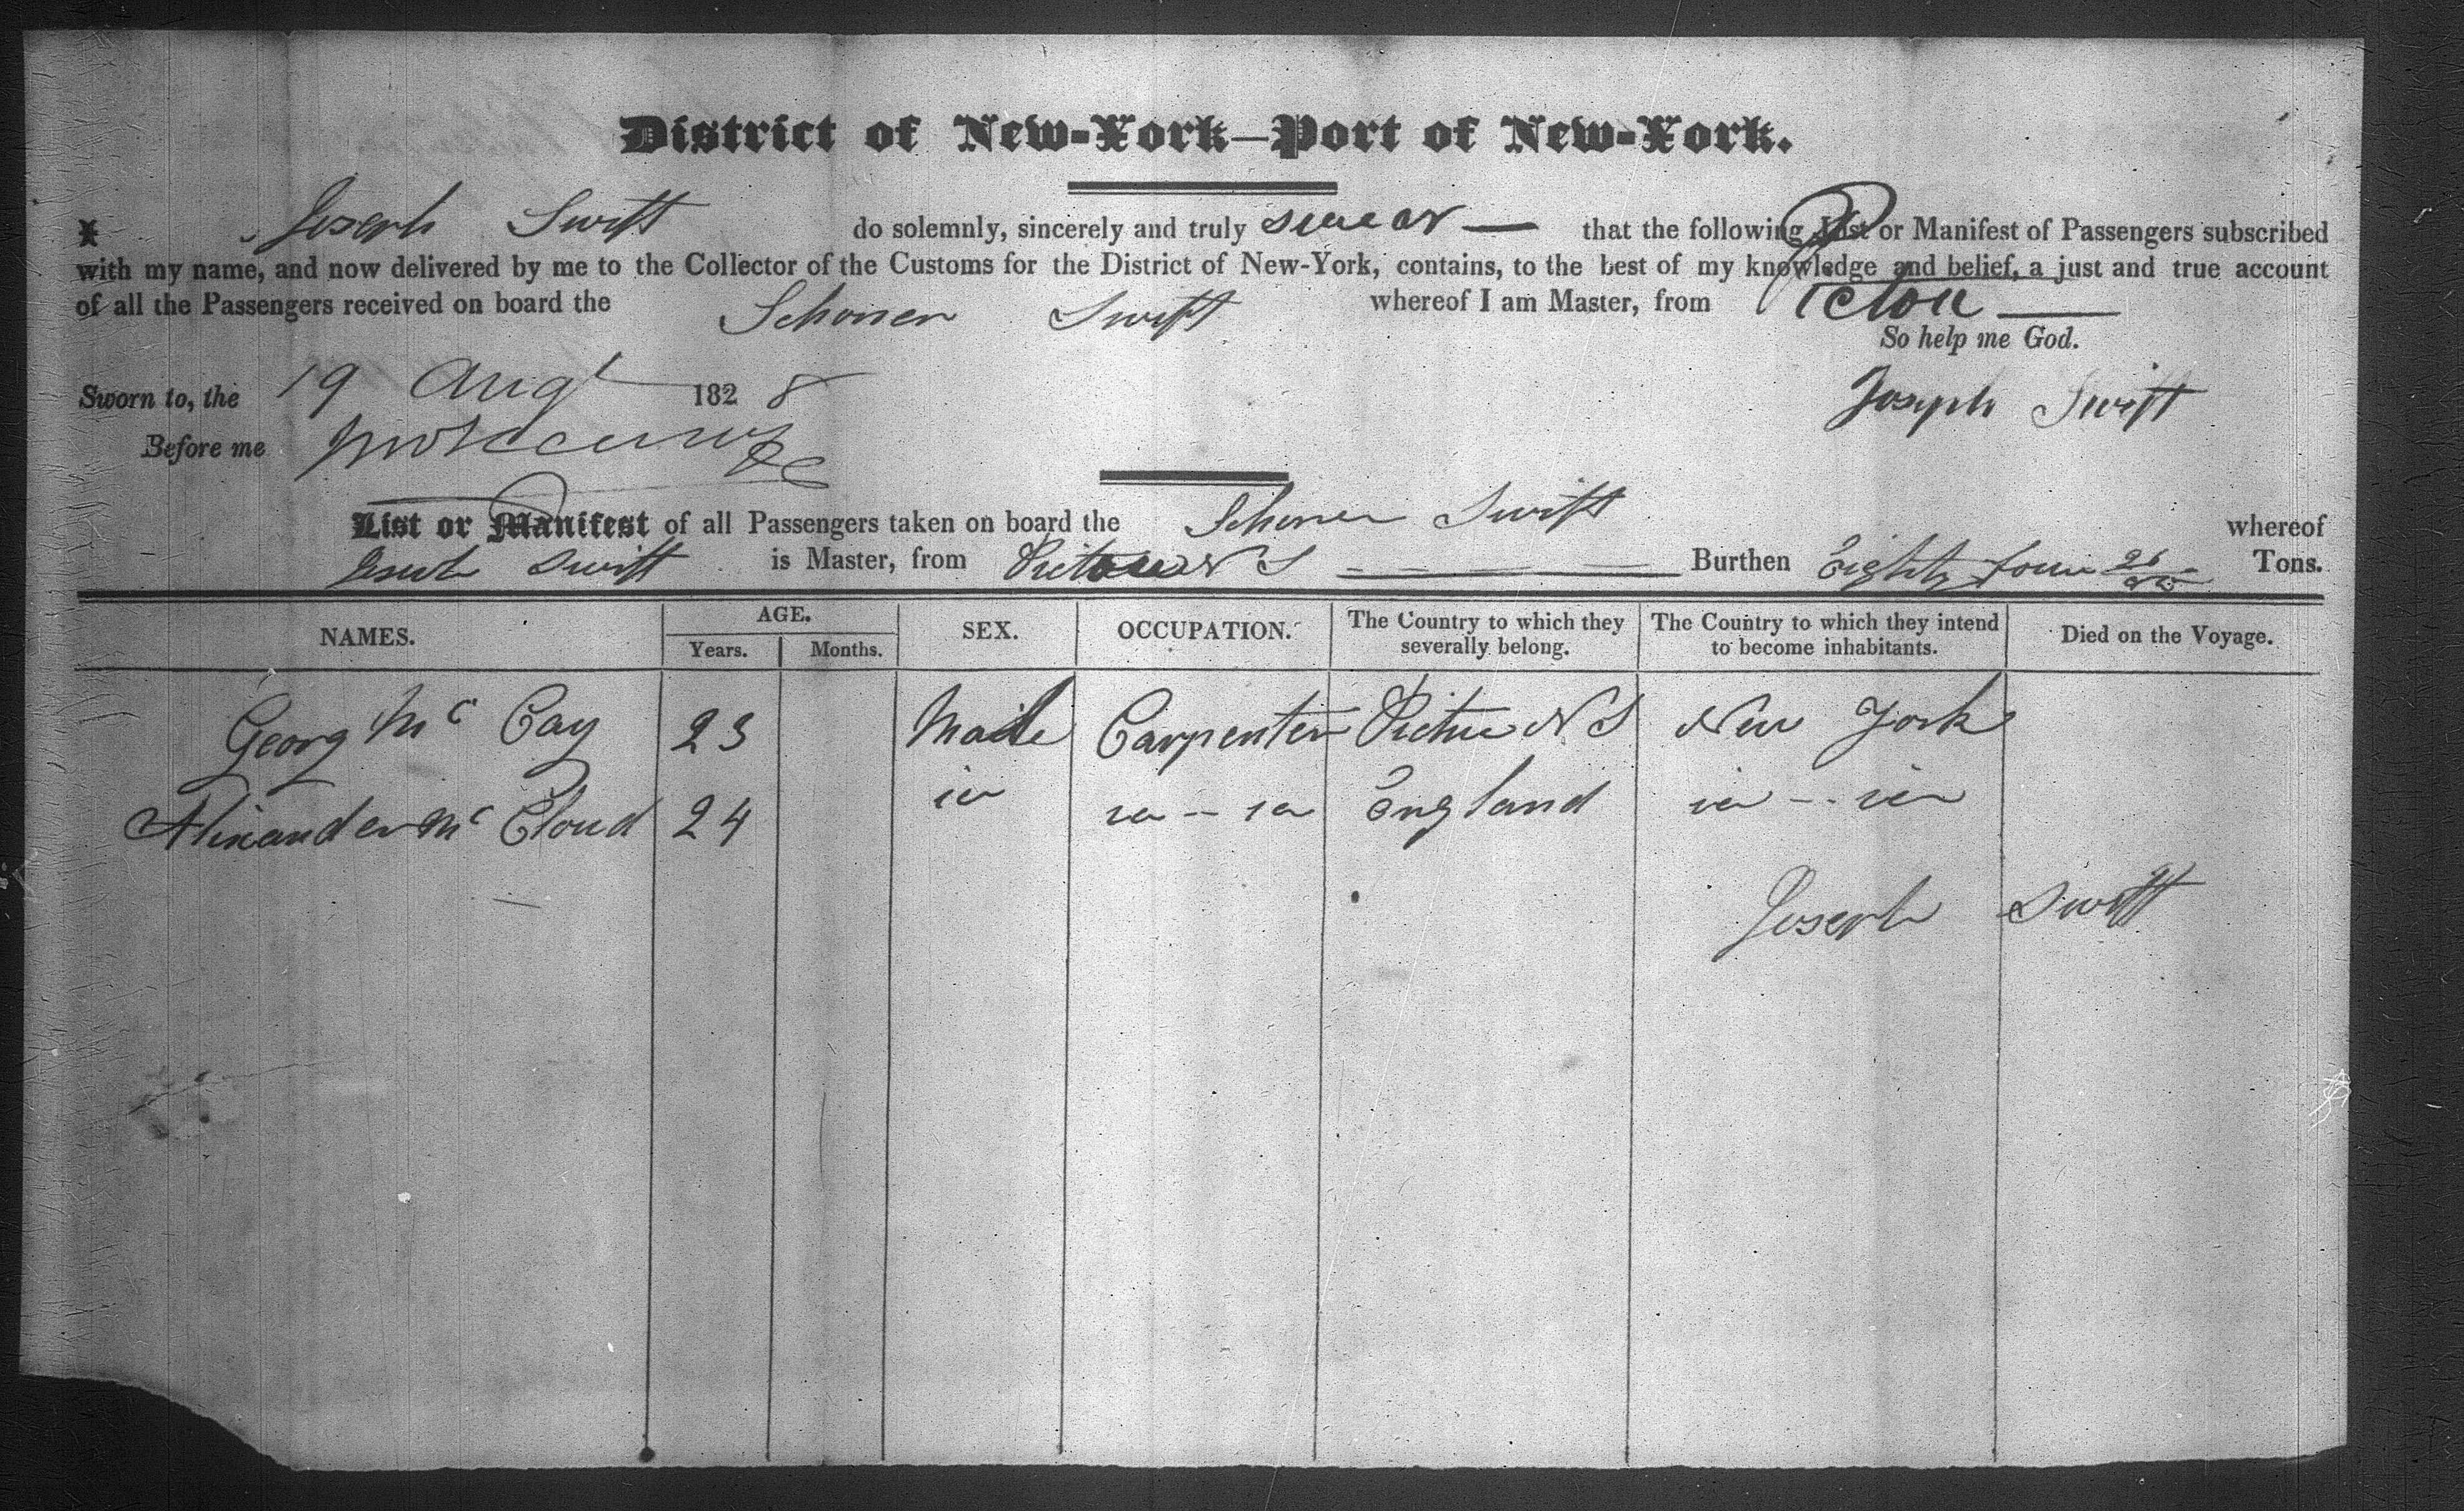 District of New-York—Port of New-York.
I Joseph Swift do solemnly, sincerely and truly swear — that the following List or Manifest of Passengers subscribed
with my name, and now delivered by me to the Collector of the Customs for the District of New-York, contains, to the best of my knowledge and belief, a just and true account
of all the Passengers received on board the Schoner Swift whereof I am Master, from Pictou
So help me God.
Sworn to, the 19 Augt 1828 Joseph Swift
Before me
List or Manifest of all Passengers taken on board the Schoner Swift whereof
Joseph Swift is Master, from Pictou N S Burthen Eighty four Tons.
NAMES. AGE. SEX. OCCUPATION. The Country to which they severally belong. The Country to which they intend to become inhabitants. Died on the Voyage.
Years. Months.
Georg Mc Cay 23 Male Carpenter Pictue N S New York
Alixander Mc Cloud 24 England
Joseph Swift